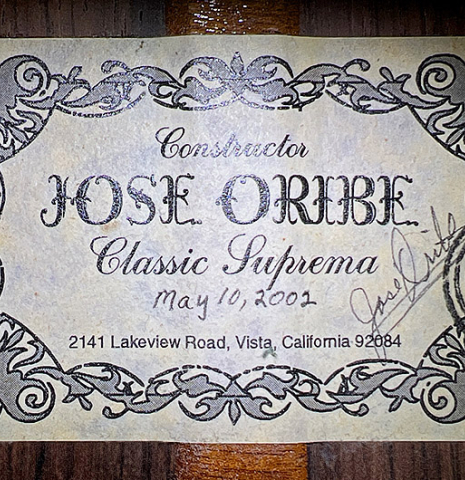 Constructor
JOSE ORIBE
Classic Suprema
May 10, 2002
Jose Oribe
2141 Lakeview Road, Vista, California 92084